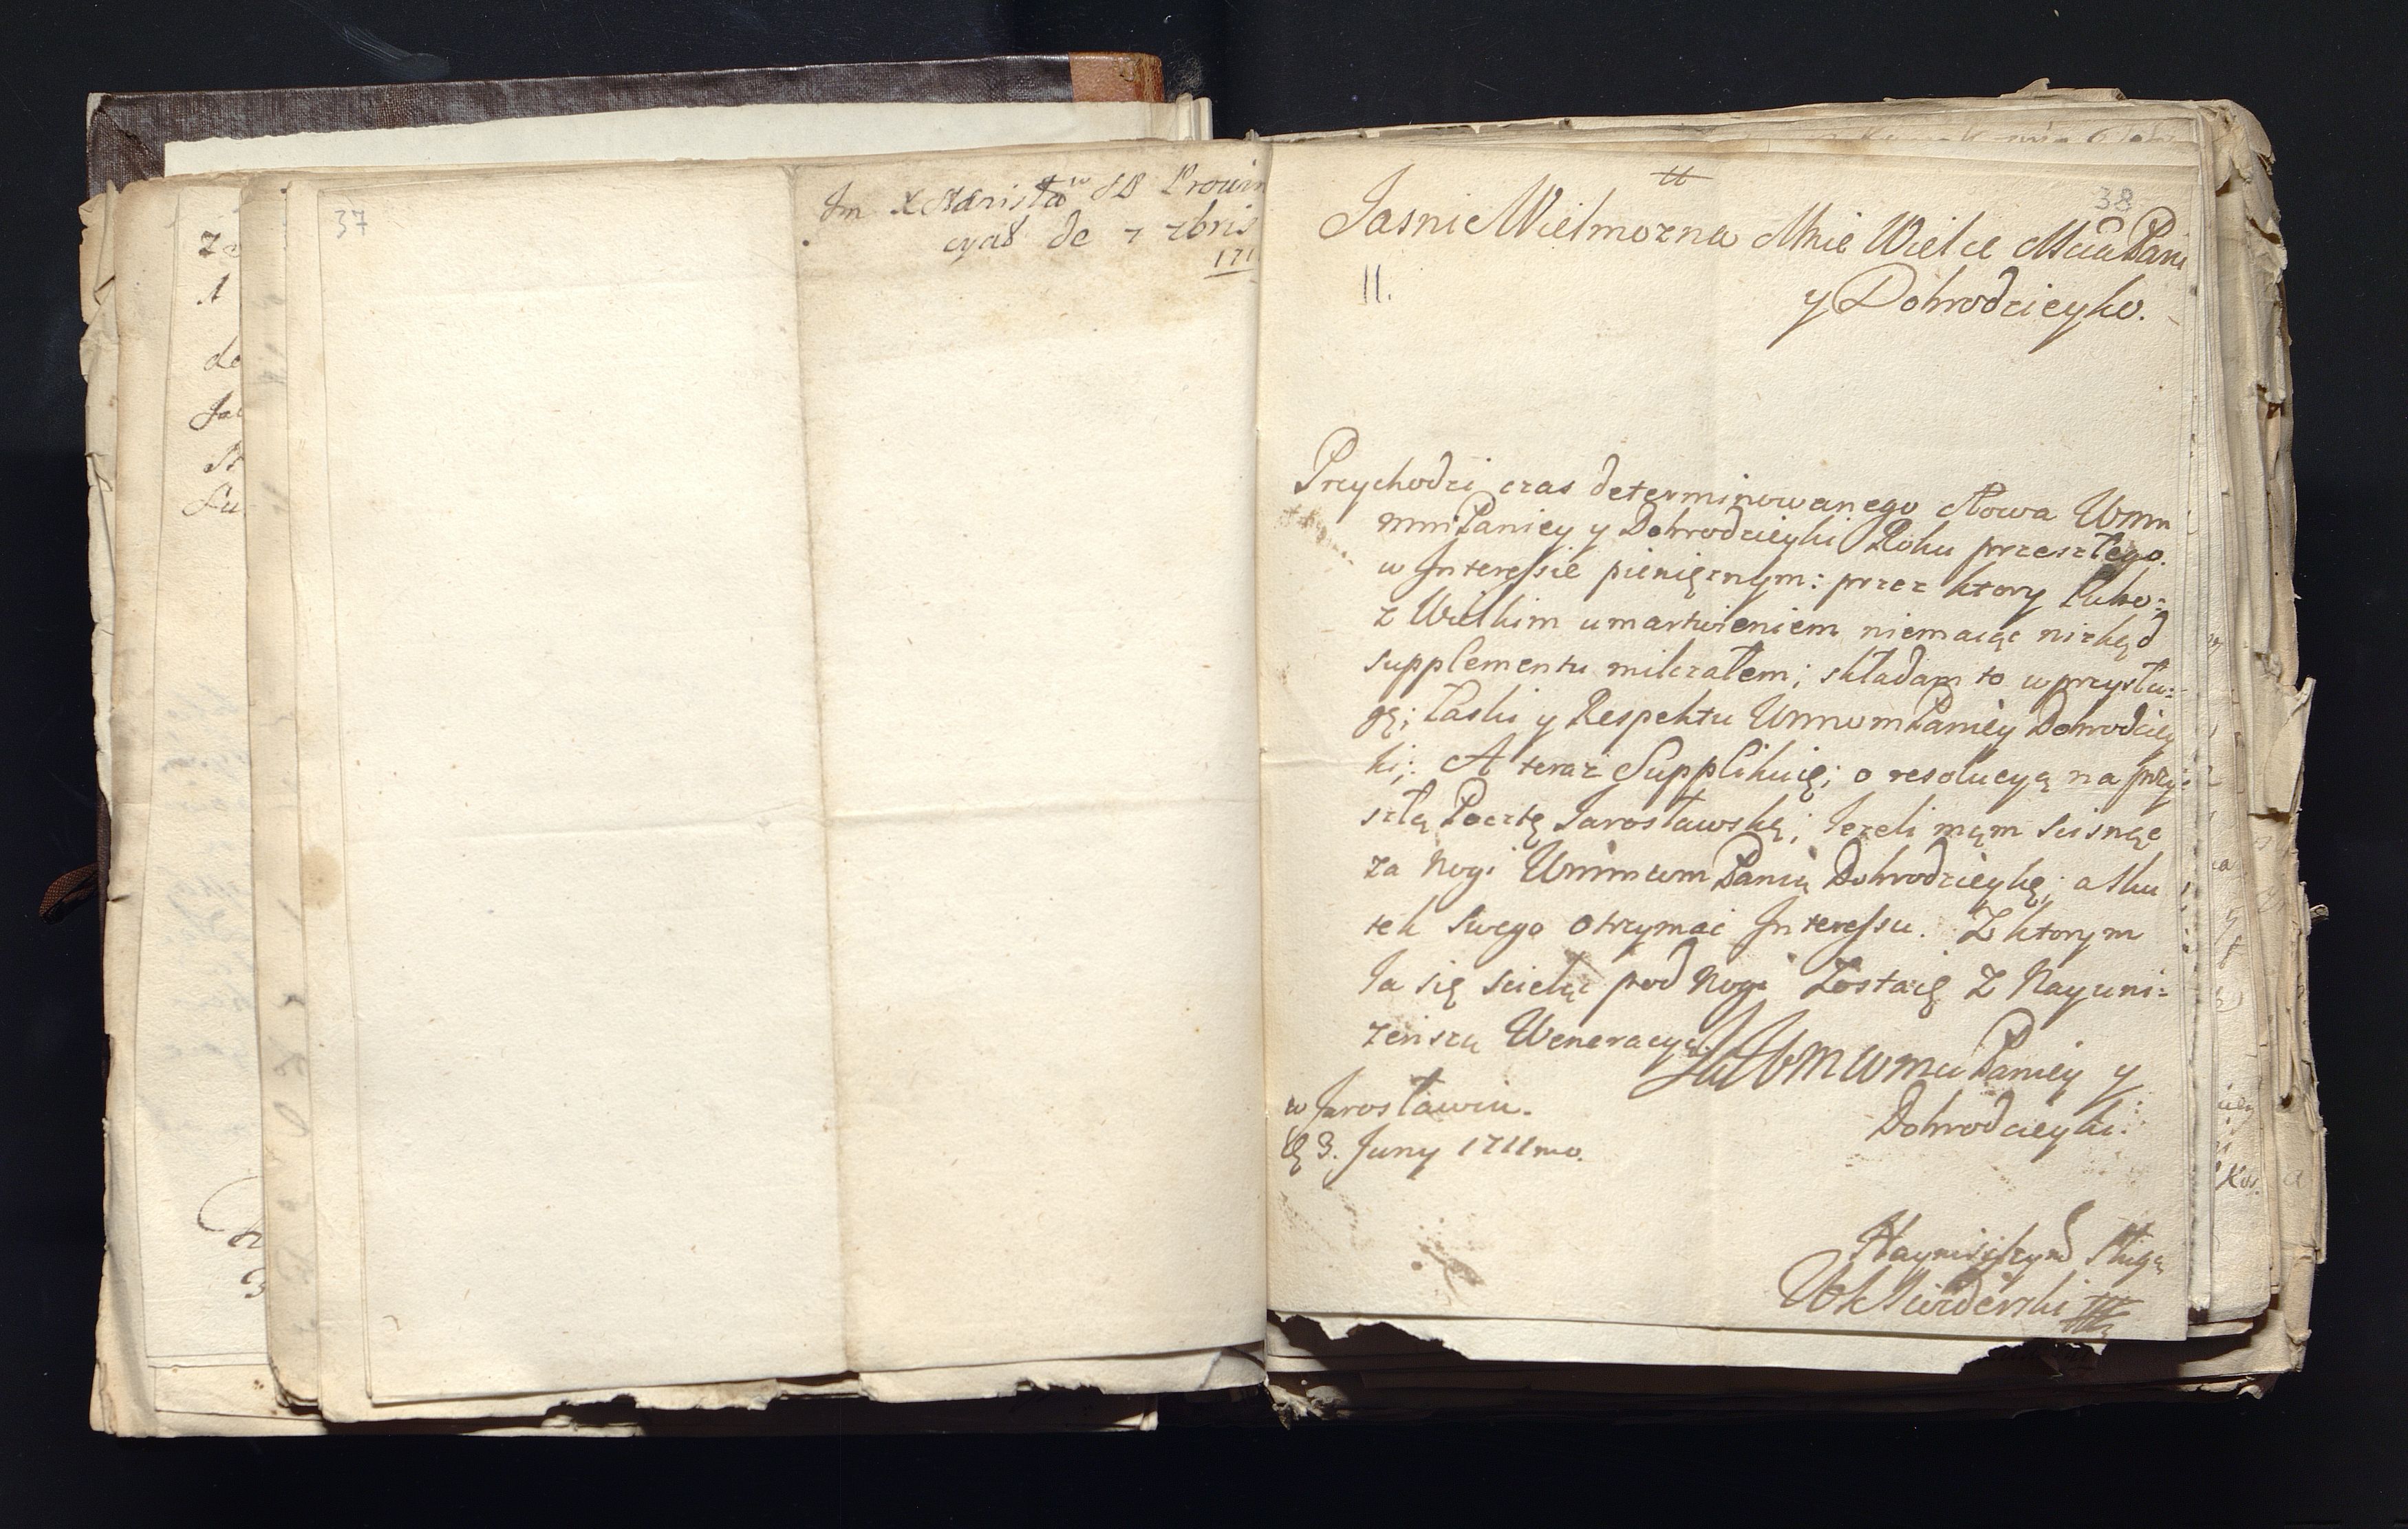 37
cyał de 7 7bris
171
38
Jasnie Wielmozna Mnie Wielce Mcia Pani
y Dobrodzieyko.
II.
Przychodzi czas determinowanego słowa Wmm
mmPaniey y Dobrodzieyki Roku przeszłego.
w Interessie pienięznym: przez ktory lubo:
z Wielkim umartwieniem niemaiąc nizkąd
supplementu milczałem; składam to w przysłu:
gę; Łaski y Respektu WmmmPaniey Dobrodziey
ki; A teraz Supplikuię; o resolucyą na przy:
szłą Pocztę Jarosławską; Jezeli mąm scisnąc
za Nogi WmmumPanią Dobrodzieykę; a sku
tek swego otrzymac Interessu. Z ktorym
Ja się scieląc pod Nogi Zostaię Z Nayuni:
zenszą Weneracyą.
Paniey y
Dobrodzieyki:
w Jarosławiu.
3. Juny 1711mo.
Nayniszszym Sługą